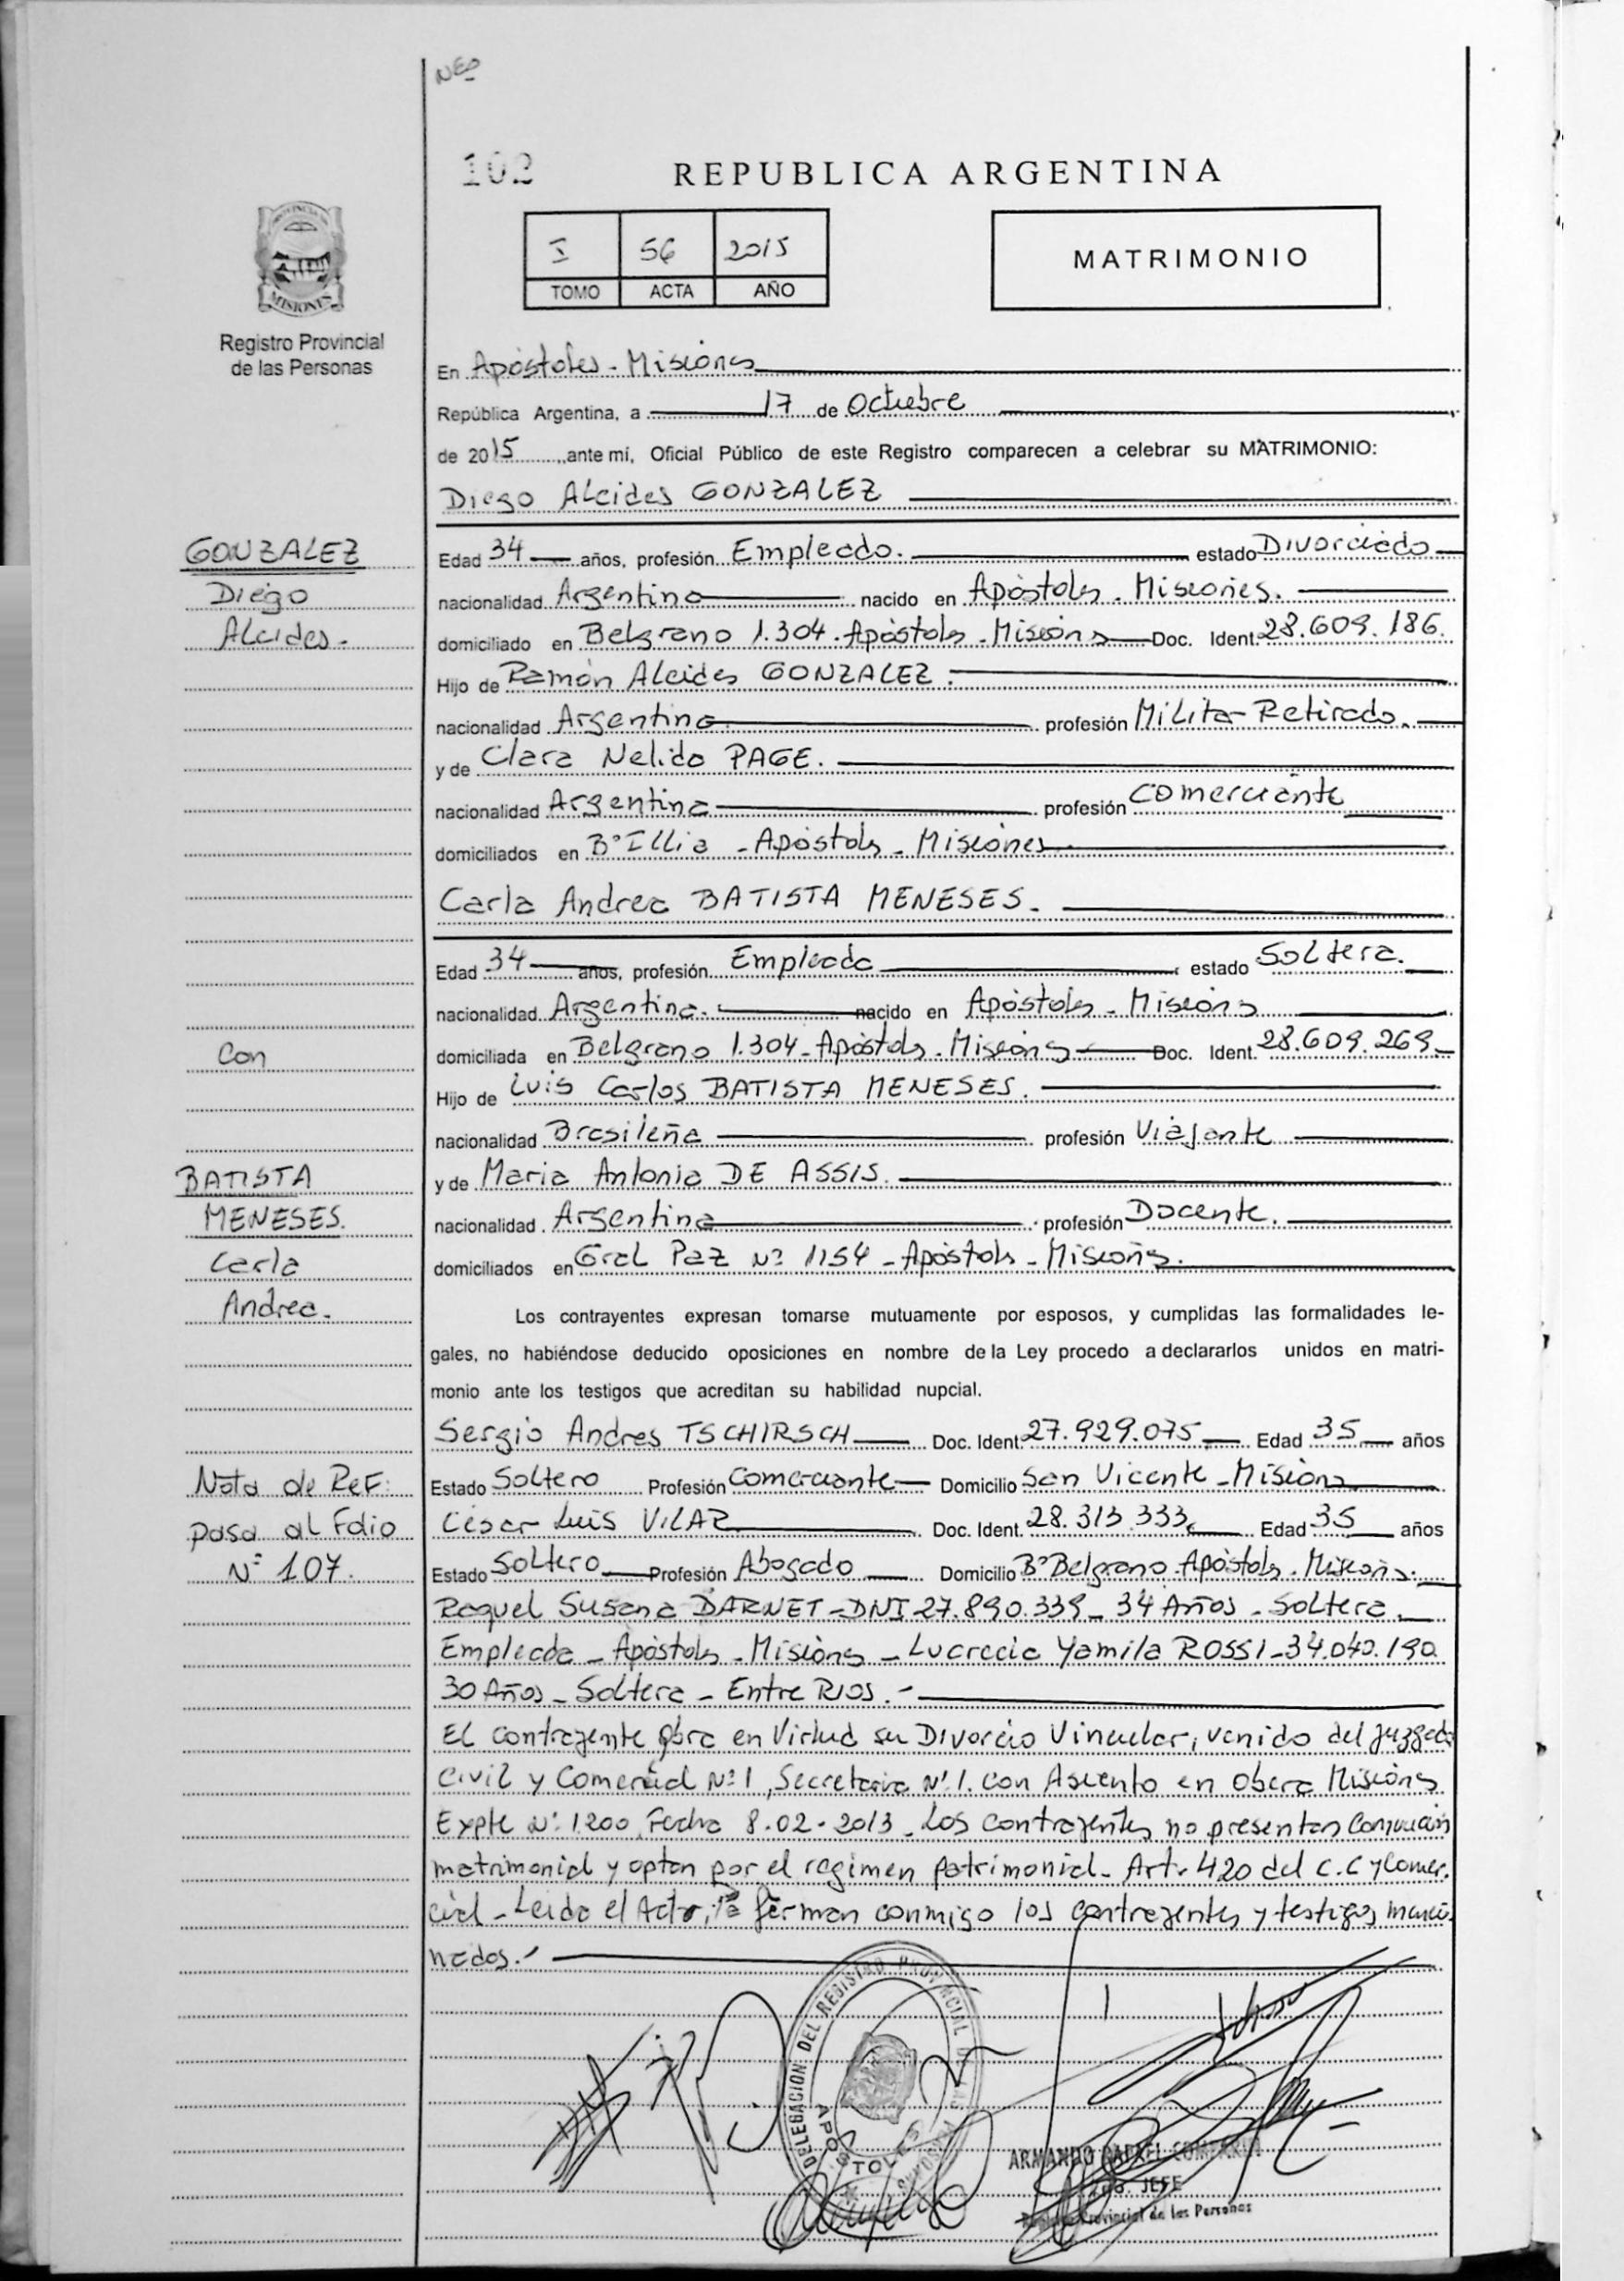 NEO
102
REPUBLICA ARGENTINA
I 56 2015
TOMO ACTA AÑO
MATRIMONIO
PROVINCIA DE
MISIONES
Registro Provincial
de las Personas
En Apóstoles - Misiones
República Argentina, a 17 de Octubre
de 2015, ante mí, Oficial Público de este Registro comparecen a celebrar su MATRIMONIO:
Diego Alcides GONZALEZ
GONZALEZ
Diego
Alcides.-
Edad 34 años, profesión Empleado. estado Divorciado
nacionalidad Argentino nacido en Apóstoles - Misiones.
domiciliado en Belgrano 1.304 - Apóstoles - Misiones Doc. Ident. 28.609.186.
Hijo de Ramón Alcides GONZALEZ.
nacionalidad Argentina profesión Militar Retirado.
y de Clara Nelida PAGE.
nacionalidad Argentina profesión Comerciante
domiciliados en B° Illia - Apóstoles - Misiones
Carla Andrea BATISTA MENESES.
Edad 34 años, profesión Empleada estado Soltera.
nacionalidad Argentina. nacido en Apóstoles - Misiones
Con
domiciliada en Belgrano 1.304 - Apóstoles - Misiones Doc. Ident. 28.609.269.
Hijo de Luis Carlos BATISTA MENESES.
nacionalidad Brasileña profesión Viajante
BATISTA
MENESES.
Carla
Andrea.
y de Maria Antonia DE ASSIS.
nacionalidad Argentina profesión Docente.
domiciliados en Gral Paz N° 1154 - Apóstoles - Misiones.
Los contrayentes expresan tomarse mutuamente por esposos, y cumplidas las formalidades le-
gales, no habiéndose deducido oposiciones en nombre de la Ley procedo a declararlos unidos en matri-
monio ante los testigos que acreditan su habilidad nupcial.
Sergio Andres TSCHIRSCH Doc. Ident. 27.929.075. Edad 35 años
Nota de Ref:
pasa al Folio
N° 107.
Estado Soltero Profesión Comerciante Domicilio San Vicente - Misiones
César Luis VILAR Doc. Ident. 28.313.333 Edad 35 años
Estado Soltero Profesión Abogado Domicilio B° Belgrano Apóstoles - Misiones.
Raquel Susana DARNET - DNI 27.890.339 - 34 Años - Soltera
Empleada - Apóstoles - Misiones - Lucrecia Yamila ROSSI - 34.040.190
30 Años - Soltera - Entre Rios.-
El contrayente obra en Virtud su Divorcio Vincular, venido del Juzgado
Civil y Comercial N° 1, Secretaria N° 1. con Asiento en Obera Misiones
Expte N° 1200 Fecha 8.02.2013 - Los contrayentes no presentan Convención
matrimonial y optan por el regimen patrimonial - Art. 420 del C.C y Comer.
cial - Leida el Acta, la firman conmigo los contrayentes y testigos mencio
nados.-
DELEGACION DEL REGISTRO PROVINCIAL DE LAS PERSONAS
APOSTOLES
ARMANDO RAFAEL
JEFE
Registro Provincial de las Personas